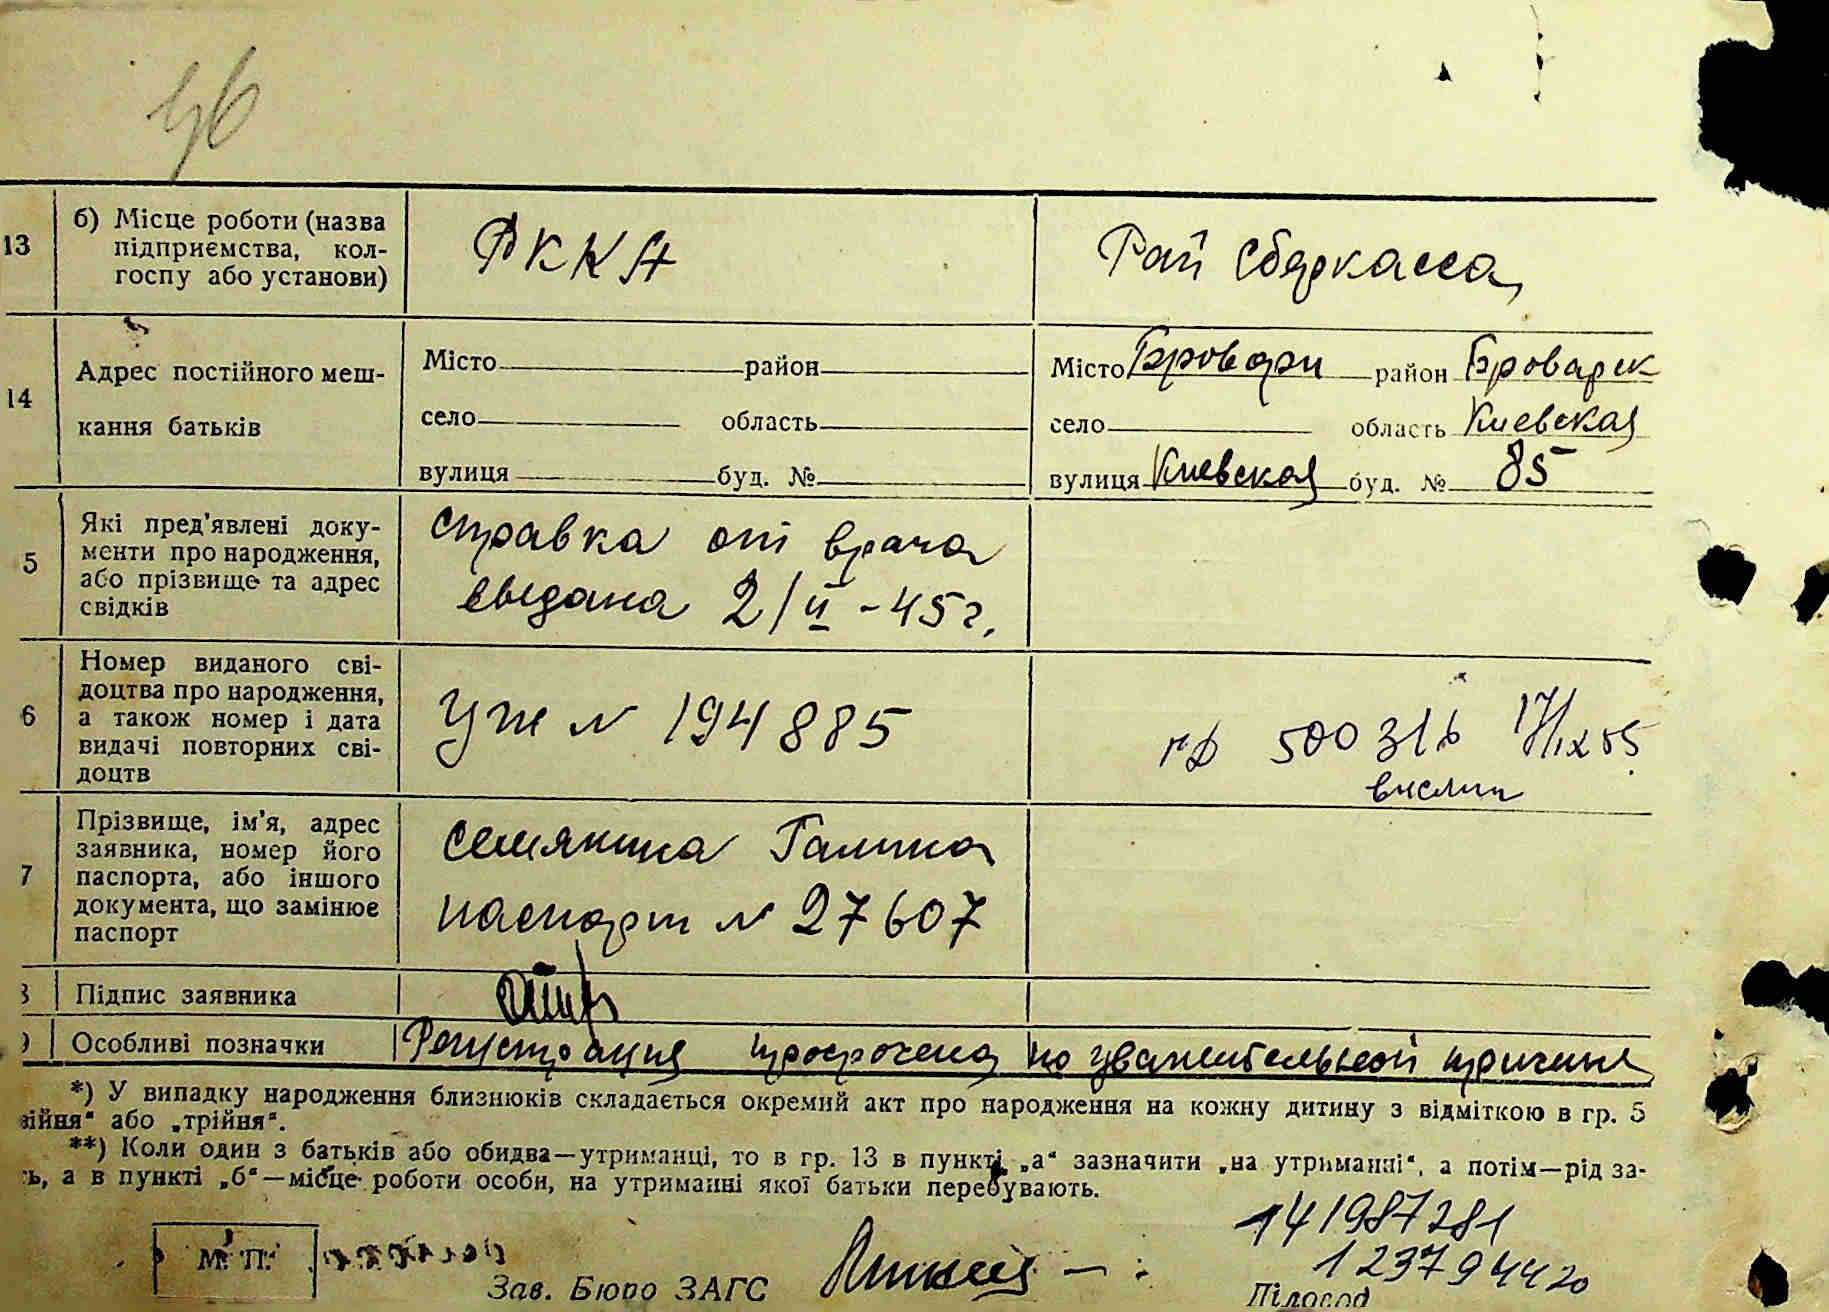 46
13 б) Місце роботи (назва підприємства, кол-госпу або установи) РККА Рай сберкасса
14 Адрес постійного меш-кання батьків
Місто район Місто Бровари район Броварск
село область село область Киевская
вулиця буд. № вулиця Киевская буд. № 85
5 Які пред'явлені доку-
менти про народження,
або прізвище та адрес
свідків
справка от врача
выдана 2/II -45 г.
6 Номер виданого сві-
доцтва про народження,
а також номер і дата
видачі повторних сві-
доцтв
УЖ N 194885
500316 17/IX 55
выслан
7 Прізвище, ім'я, адрес
заявника, номер його
паспорта, або іншого
документа, що замінює
паспорт
Семякина Галина
паспорт N 27607
Підпис заявника
Особливі позначки Регистрация просрочена по уважительной причине
*) У випадку народження близнюків складається окремий акт про народження на кожну дитину з відміткою в гр. 5
війня" або „трійня".
**) Коли один з батьків або обидва—утриманці, то в гр. 13 в пункті „а" зазначити „на утриманні", а потім—рід за-
ь, а в пункті „б"—місце роботи особи, на утриманні якої батьки перебувають.
М. П.
Зав. Бюро ЗАГС
141987281
123794420